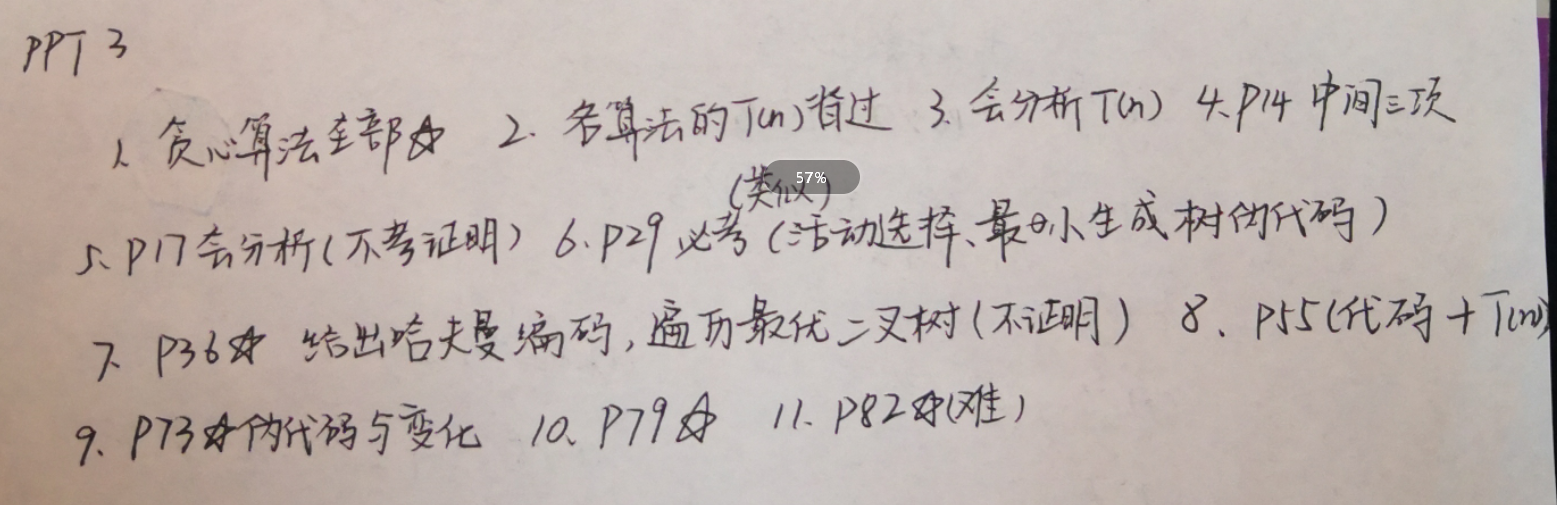 PPT 3
1. 贪心算法全部☆ 2. 各算法的T(n)背过 3. 会分析T(n) 4. P14 中间三项
57%
(类似)
5. P17会分析(不考证明) 6. P29 必考 (活动选择、最小生成树伪代码)
7. P36☆ 给出哈夫曼编码,遍历最优二叉树(不证明) 8. P55(代码+T(n)
9. P73☆伪代码与变化 10. P79☆ 11. P82☆(难)